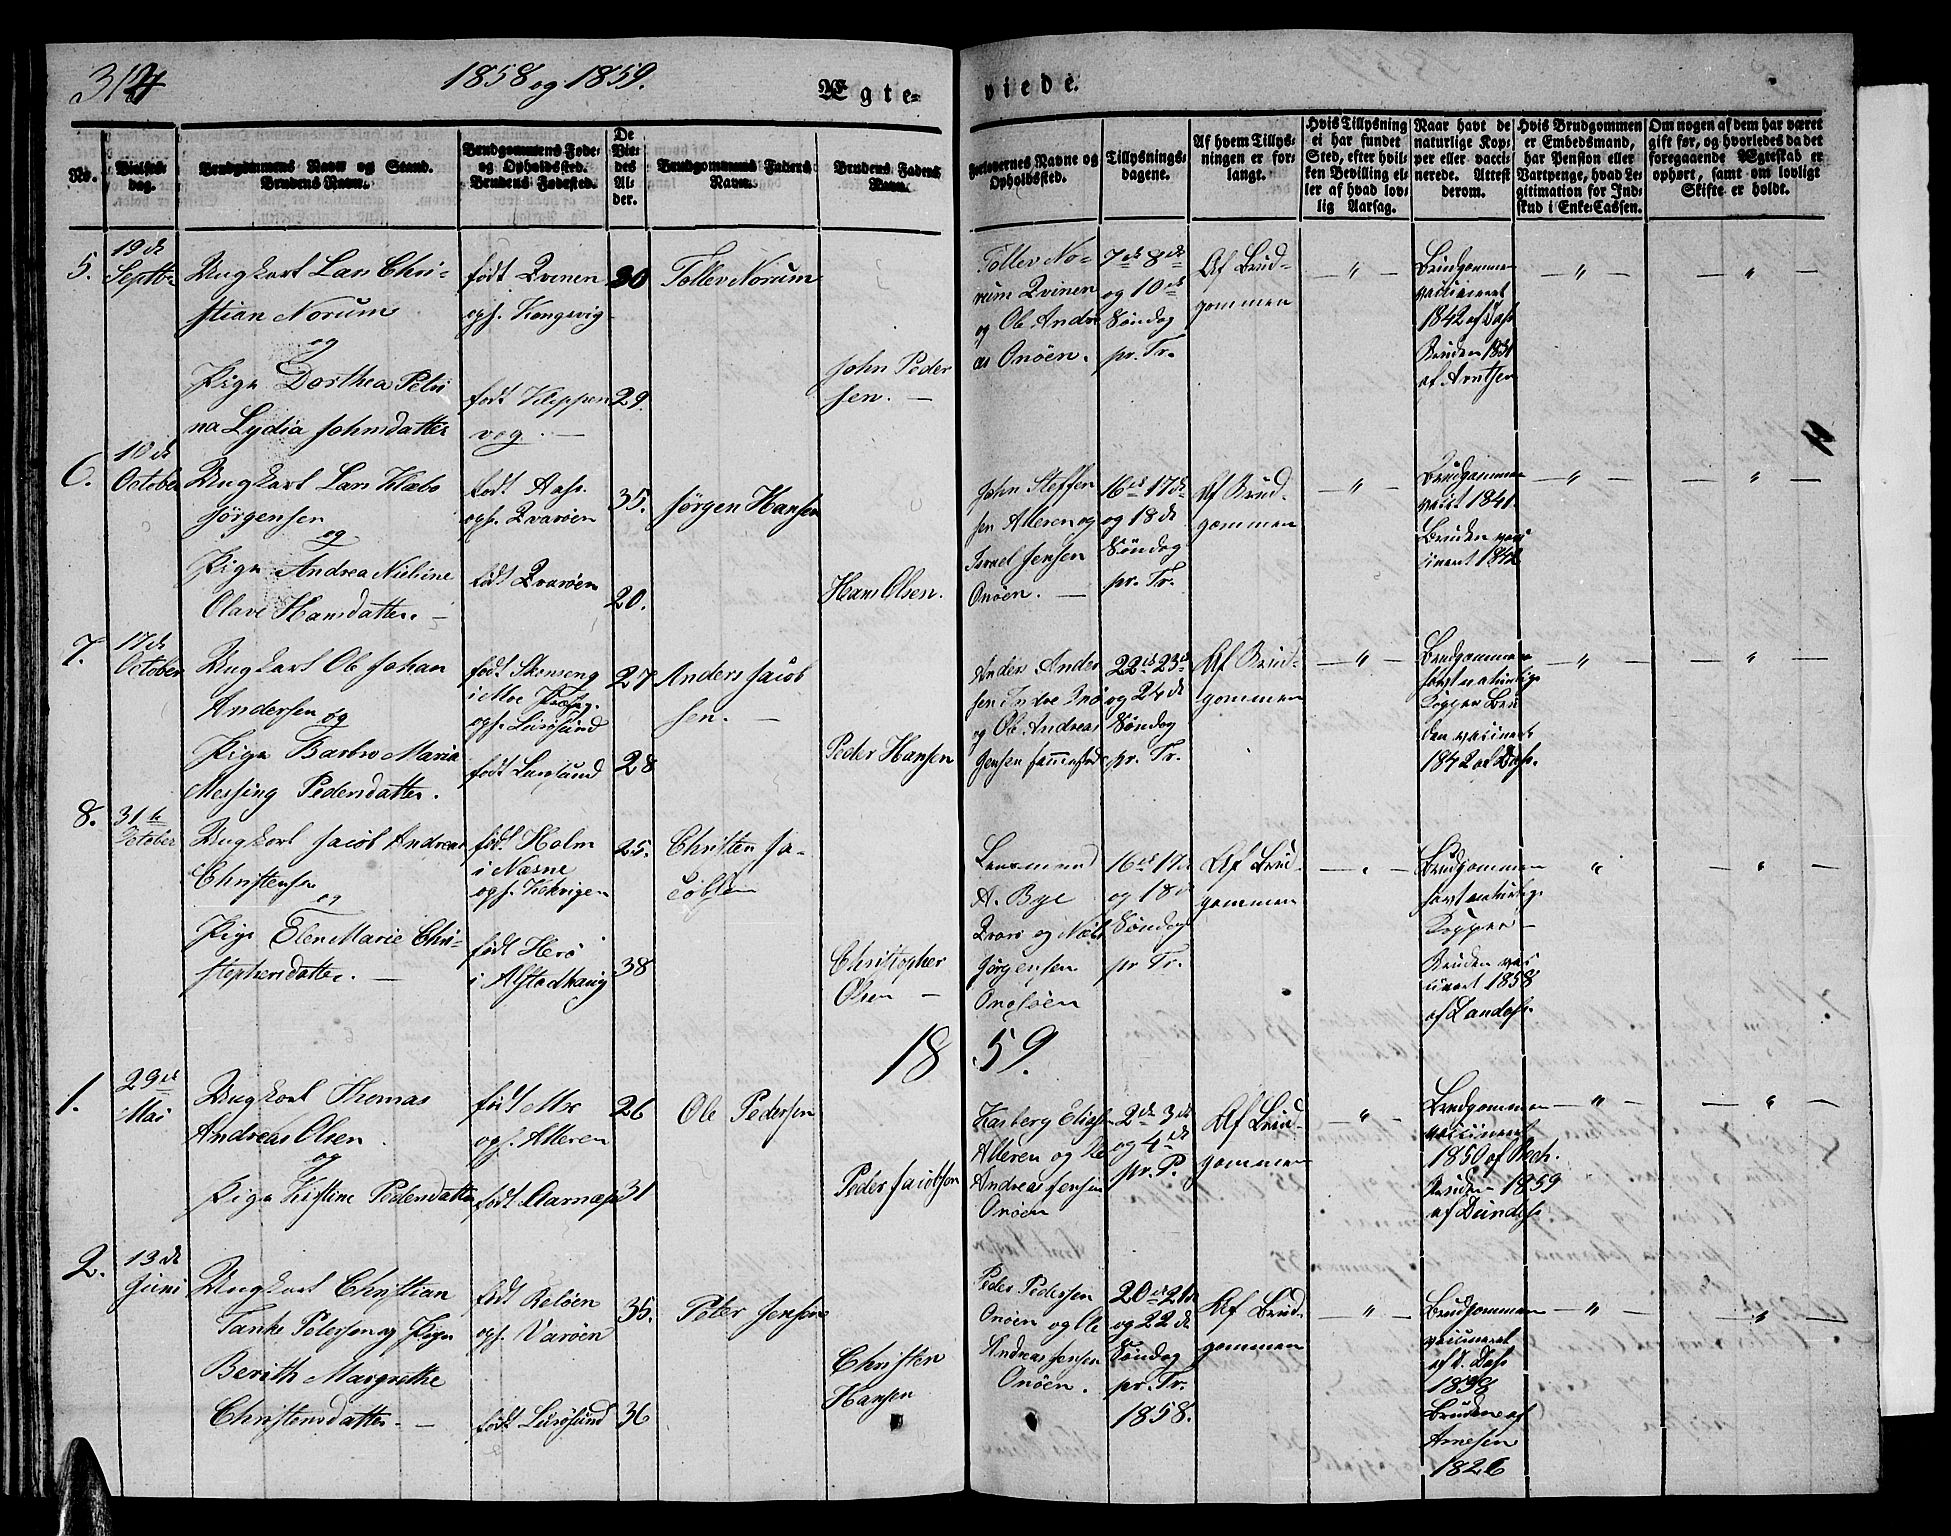 314
1858 og 1859.
Ægte-
viede.
No.
Vielses-
dag.
Brudgommens Navn og Stand.
Brudens Navn.
Brudgommens Føde-
og Opholdssted.
Brudens Fødested.
De
Vie-
des
Al-
der.
Brudgommens Faders
Navn.
Brudens Faders
Navn.
Forlovernes Navne og
Opholdssted.
Tillysnings-
dagene.
Af hvem Tillys-
ningen er for-
langt.
Hvis Tillysning
ei har fundet
Sted, efter hvil-
ken Bevilling el-
ler af hvad lov-
lig Aarsag.
Naar havt de
naturlige Kop-
per eller vacci-
nerede. Attest
derom.
Hvis Brudgommen
er Embedsmand,
har Pension eller
Vartpenge, hvad Le-
gitimation for Ind-
skud i Enke-Cassen.
Om nogen af dem har været
gift før, og hvorledes da det
foregaaende Ægteskab er
ophørt, samt om lovligt
Skifte er holdt.
5.
19de
Septbr
Ungkarl Lars Chri-
stian Norum
og
Pige Dorthea Petri
na Lydia Johnsdatter
født Qvinen
oph. Kongsvig
født Kleppen
vog
30
29.
Tollev Norum
John Peder
sen.
Tollev No-
rum Qvinen
og Ole Andre
as Onøen.
7de 8de
og 10de
Søndag
pr. Tr.
Af Brud-
gommen
Brudgommen
vaccineret
1842 af Dass
Bruden 1831
af Arntsen
6.
10de
October
Ungkarl Lars Klæbo
Jørgensen
og
Pige Andrea Nicline
Olave Hansdatter.
født Aase
oph. Qvarøen
født Qvarøen
35.
20.
Jørgen Hansen
Hans Olsen.
John Steffen
sen Alteren og
Israel Jensen
Onøen.
16de 17de
og 18de
Søndag
pr. Tr.
Af Brud-
gommen
Brudgommen
vacct 1841.
Bruden vac
cineret 1842
7.
17de
October
Ungkarl Ole Johan
Andersen
og
Pige Barbro Maria
Messing Pedersdatter.
født Skonseng
i Moe Præstg.
oph. Lurøsund
født Lursund
27
28
Anders Jacob
sen.
Peder Hansen
Anders Ander
sen Indre Onø
og Ole Andreas
Jensen
22de 23de
og 24de
Søndag
pr. Tr.
Af Brud-
gommen
Brudgommen
havt naturlige
Kopper Bru
den vaccineret
1842 af Dass.
8.
31te
October
Ungkarl Jacob Andreas
Christensen
og
Pige Elen Marie Chri-
stophersdatter.
født Holm
i Næsne
oph. Kakrigen
født Herø
i Alstadhaug
25.
38
Christen Ja-
cobsen
Christopher
Olsen
Lensmand
A. Bye
Qvarø og Niels
Jørgensen
Onøen
16de 17de
og 18de
Søndag
pr Tr.
Af Brud-
gommen
Brudgommen
havt naturlige
Kopper
Bruden vac
cineret 1858
af Landoss.
1859.
1.
29de
Mai
Ungkarl Thomas
Andreas Olsen
og
Pige Kistine Pedersdatter
født Mo
oph. Alteren
født Aarnæs
26
31
Ole Pedersen
Peder Jacobsen
Hasberg Eliasen
Alteren og Ole
Andreas Jensen
Onøen
2de 3de
og 4de
pr. P.
Af Brud-
gommen
Brudgommen
vaccineret
1850 af Rech.
Bruden 1859
af Dundass
2.
13de
Juni
Ungkarl Christian
Tanke Petersen og Pige
Berith Margrethe
Christensdatter.
født Reløen
oph. Varøen
født Lurøsund
35.
36
Peter Jensen
Christen
Hansen
Peder Pedersen
Onøen og Ole
Andreas Jensen
Onøen.
20de 21de
og 22de
Søndag
pr. Tr.
1858.
Af Brud-
gommen
Brudgommen
vaccineret
af D. Dass
1838
Bruden af
Arnesen
1826